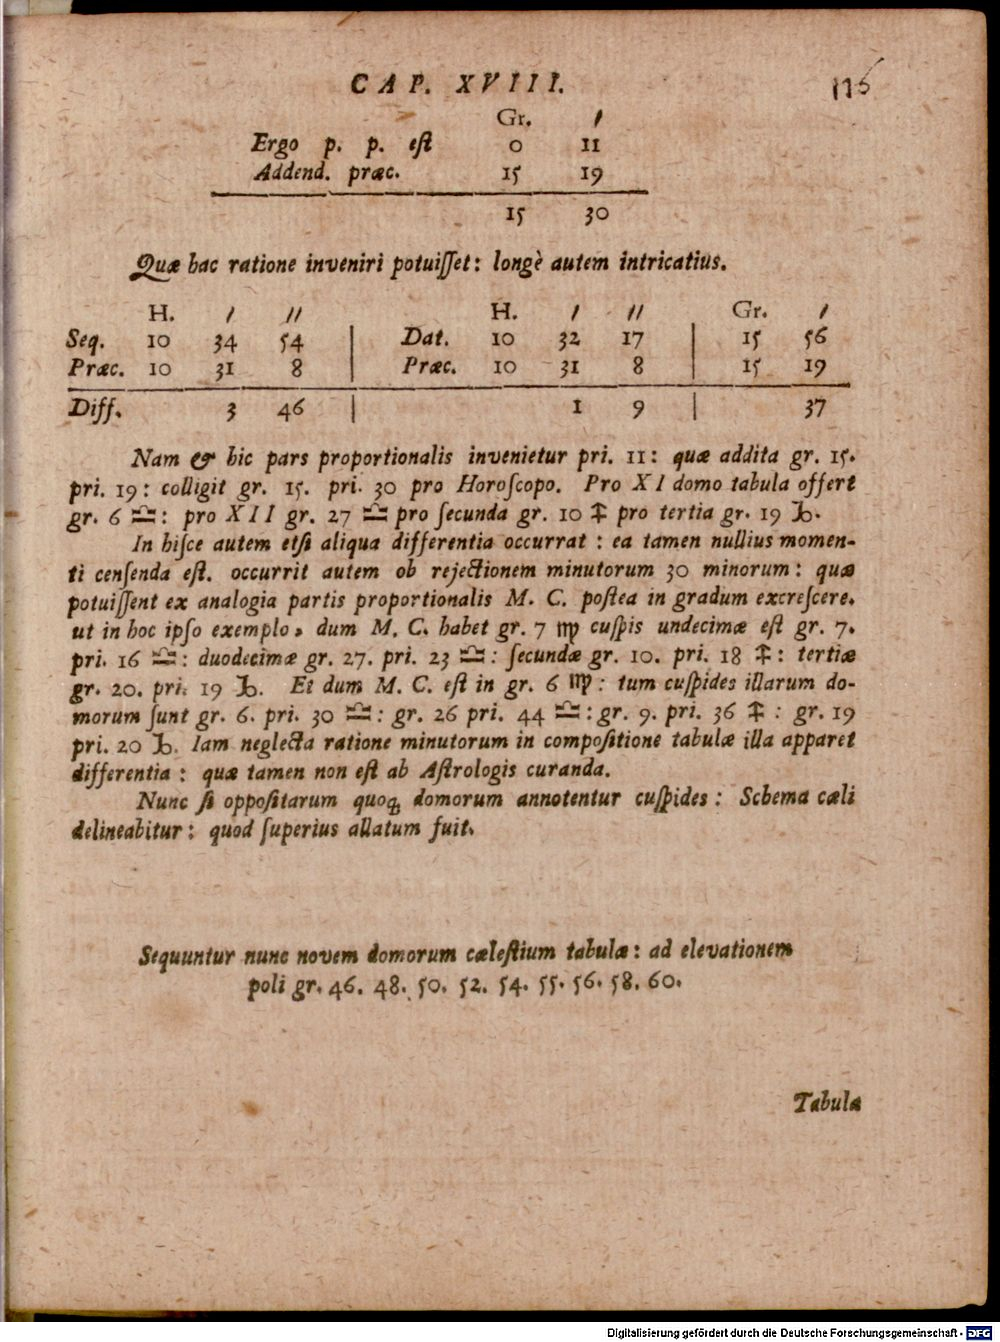 CAP. XVIII. 116
Gr. ′
Ergo p. p. eſt 0 11
Addend. præc. 15 19
15 30
Quæ hac ratione inveniri potuiſſet: longè autem intricatius.
H. ′ ″ H. ′ ″ Gr. ′
Seq. 10 34 54 | Dat. 10 32 17 | 15 56
Præc. 10 31 8 | Præc. 10 31 8 | 15 19
Diff. 3 46 | 1 9 | 37
Nam & hic pars proportionalis invenietur pri. 11: quæ addita gr. 15.
pri. 19: colligit gr. 15. pri. 30 pro Horoſcopo. Pro XI domo tabula offert
gr. 6 ♎: pro XII gr. 27 ♎ pro ſecunda gr. 10 ♐ pro tertia gr. 19 ♑.
In hiſce autem etſi aliqua differentia occurrat : ea tamen nullius momen-
ti cenſenda eſt. occurrit autem ob rejectionem minutorum 30 minorum: quæ
potuiſſent ex analogia partis proportionalis M. C. poſtea in gradum excreſcere.
ut in hoc ipſo exemplo, dum M. C. habet gr. 7 ♍ cuſpis undecimæ eſt gr. 7.
pri. 16 ♎: duodecimæ gr. 27. pri. 23 ♎: ſecundæ gr. 10. pri. 18 ♐: tertiæ
gr. 20. pri. 19 ♑. Et dum M. C. eſt in gr. 6 ♍: tum cuſpides illarum do-
morum ſunt gr. 6. pri. 30 ♎: gr. 26 pri. 44 ♎: gr. 9. pri. 36 ♐ : gr. 19
pri. 20 ♑. Iam neglecta ratione minutorum in compoſitione tabulæ illa apparet
differentia : quæ tamen non eſt ab Aſtrologis curanda.
Nunc ſi oppoſitarum quoq; domorum annotentur cuſpides : Schema cæli
delineabitur: quod ſuperius allatum fuit.
Sequuntur nunc novem domorum cæleſtium tabulæ: ad elevationem
poli gr. 46. 48. 50. 52. 54. 55. 56. 58. 60.
Tabula
Digitalisierung gefördert durch die Deutsche Forschungsgemeinschaft - DFG